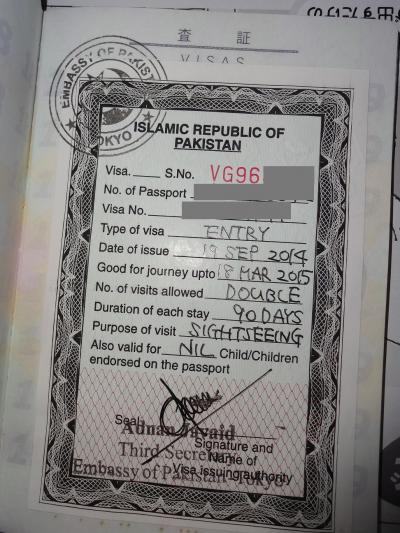 査 証
VISAS
EMBASSY OF PAKISTAN
TOKYO
ISLAMIC REPUBLIC OF
PAKISTAN
Visa. ____ S.No. VG96
No. of Passport
Visa No.
Type of visa ENTRY
Date of issue 19 SEP 2014
Good for journey upto 18 MAR 2015
No. of visits allowed DOUBLE
Duration of each stay 90 DAYS
Purpose of visit SIGHTSEEING
Also valid for NIL Child/Children
endorsed on the passport
Seal
Adnan Javaid
Signature and
Third Secretary
Name of
Embassy of Pakistan Tokyo
Visa issuing authority